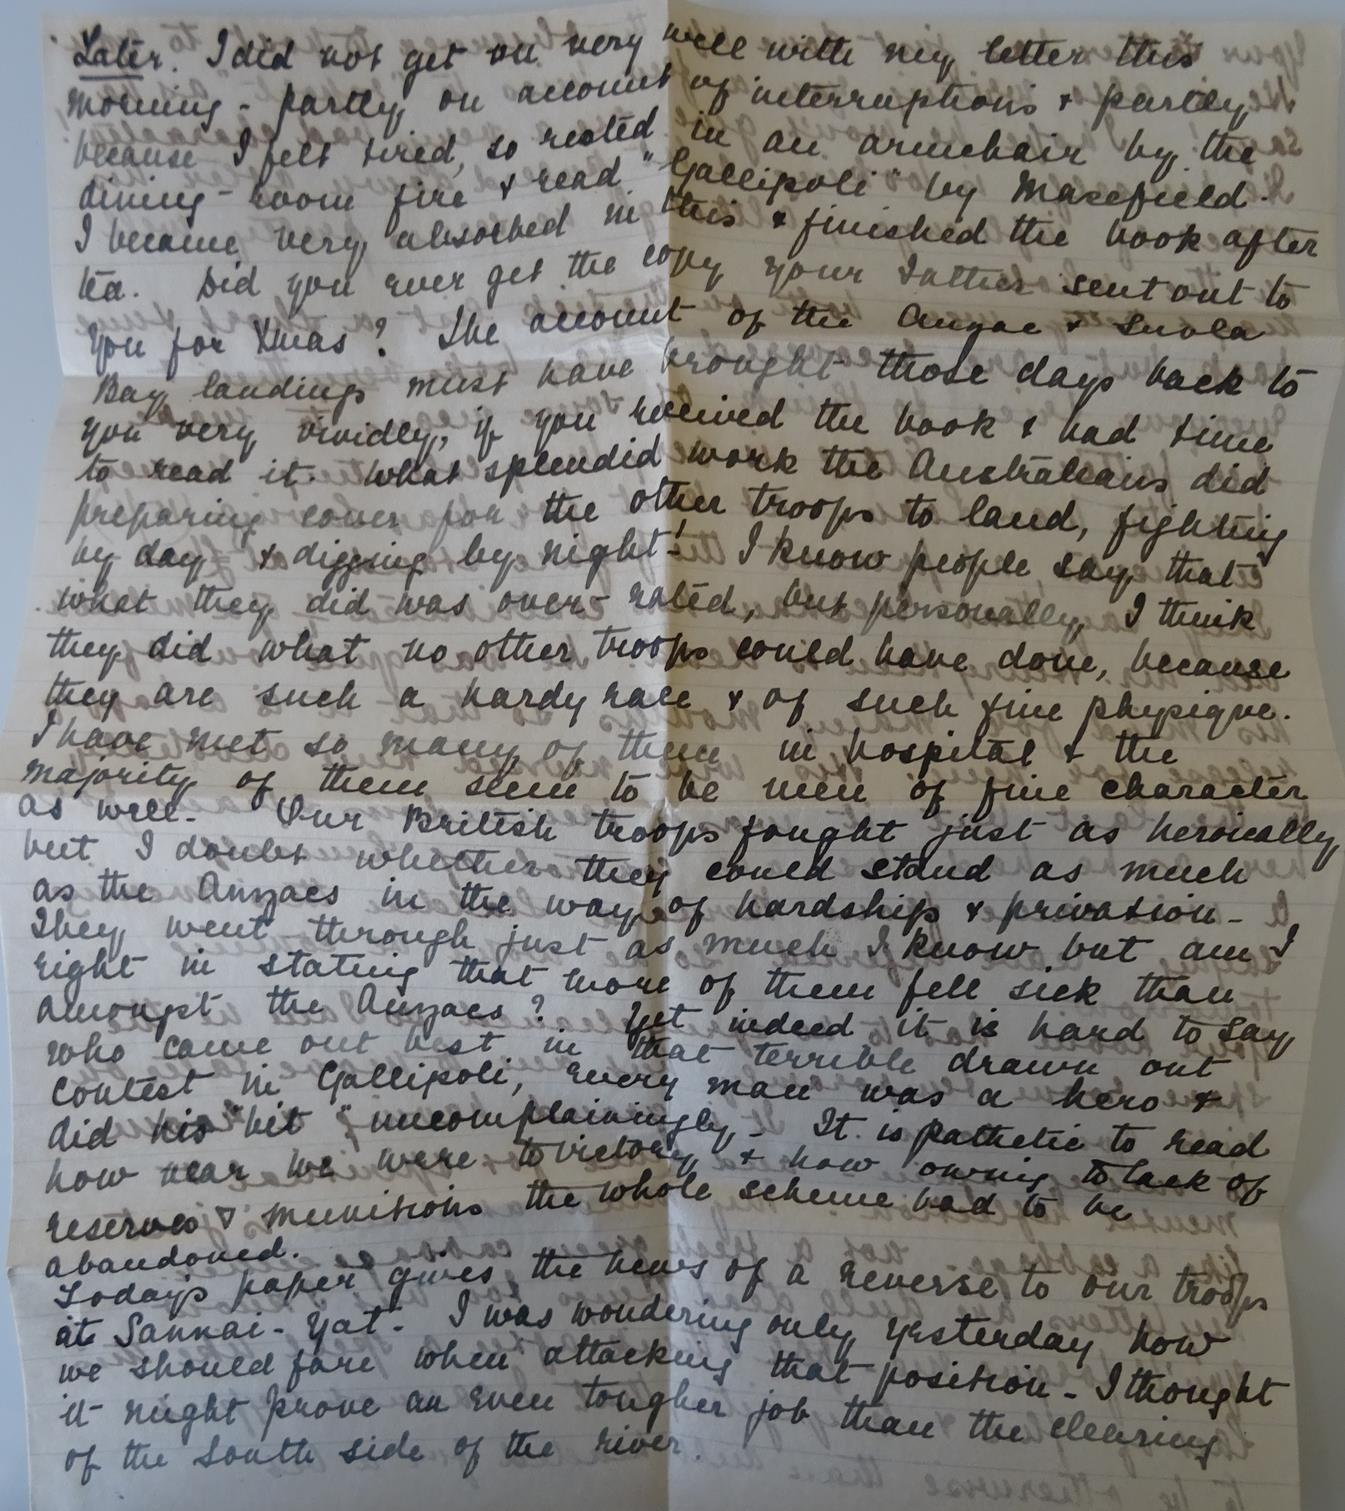 Later. I did not get on very well with my letter this
morning - partly on account of interruptions & partly
because I felt tired, so rested in an armchair by the
dining-room fire & read "Gallipoli" by Masefield.
I became very absorbed in this & finished the book after
tea. Did you ever get the copy your Father sent out to
you for Xmas? The account of the Anzac & Suvla
Bay landings must have brought those days back to
you very vividly, if you received the book & had time
to read it. What splendid work the Australians did
preparing cover for the other troops to land, fighting
by day & digging by night! I know people say that
what they did was over-rated, but personally I think
they did what no other troops could have done, because
they are such a hardy race & of such fine physique.
I have met so many of them in hospital & the
majority of them seem to be men of fine character
as well. Our British troops fought just as heroically
but I doubt whether they could stand as much
as the Anzacs in the way of hardship & privation -
They went through just as much I know but am I
right in stating that more of them fell sick than
amongst the Anzacs? Yet indeed it is hard to say
who came out best in that terrible drawn out
contest in Gallipoli, every man was a hero &
did his "bit" uncomplainingly - It is pathetic to read
how near we were to victory & how owing to lack of
reserves & munitions the whole scheme had to be
abandoned.
Today's paper gives the news of a reverse to our troops
at Sannai-Yat - I was wondering only yesterday how
we should fare when attacking that position - I thought
it might prove an even tougher job than the clearing
of the South side of the river.